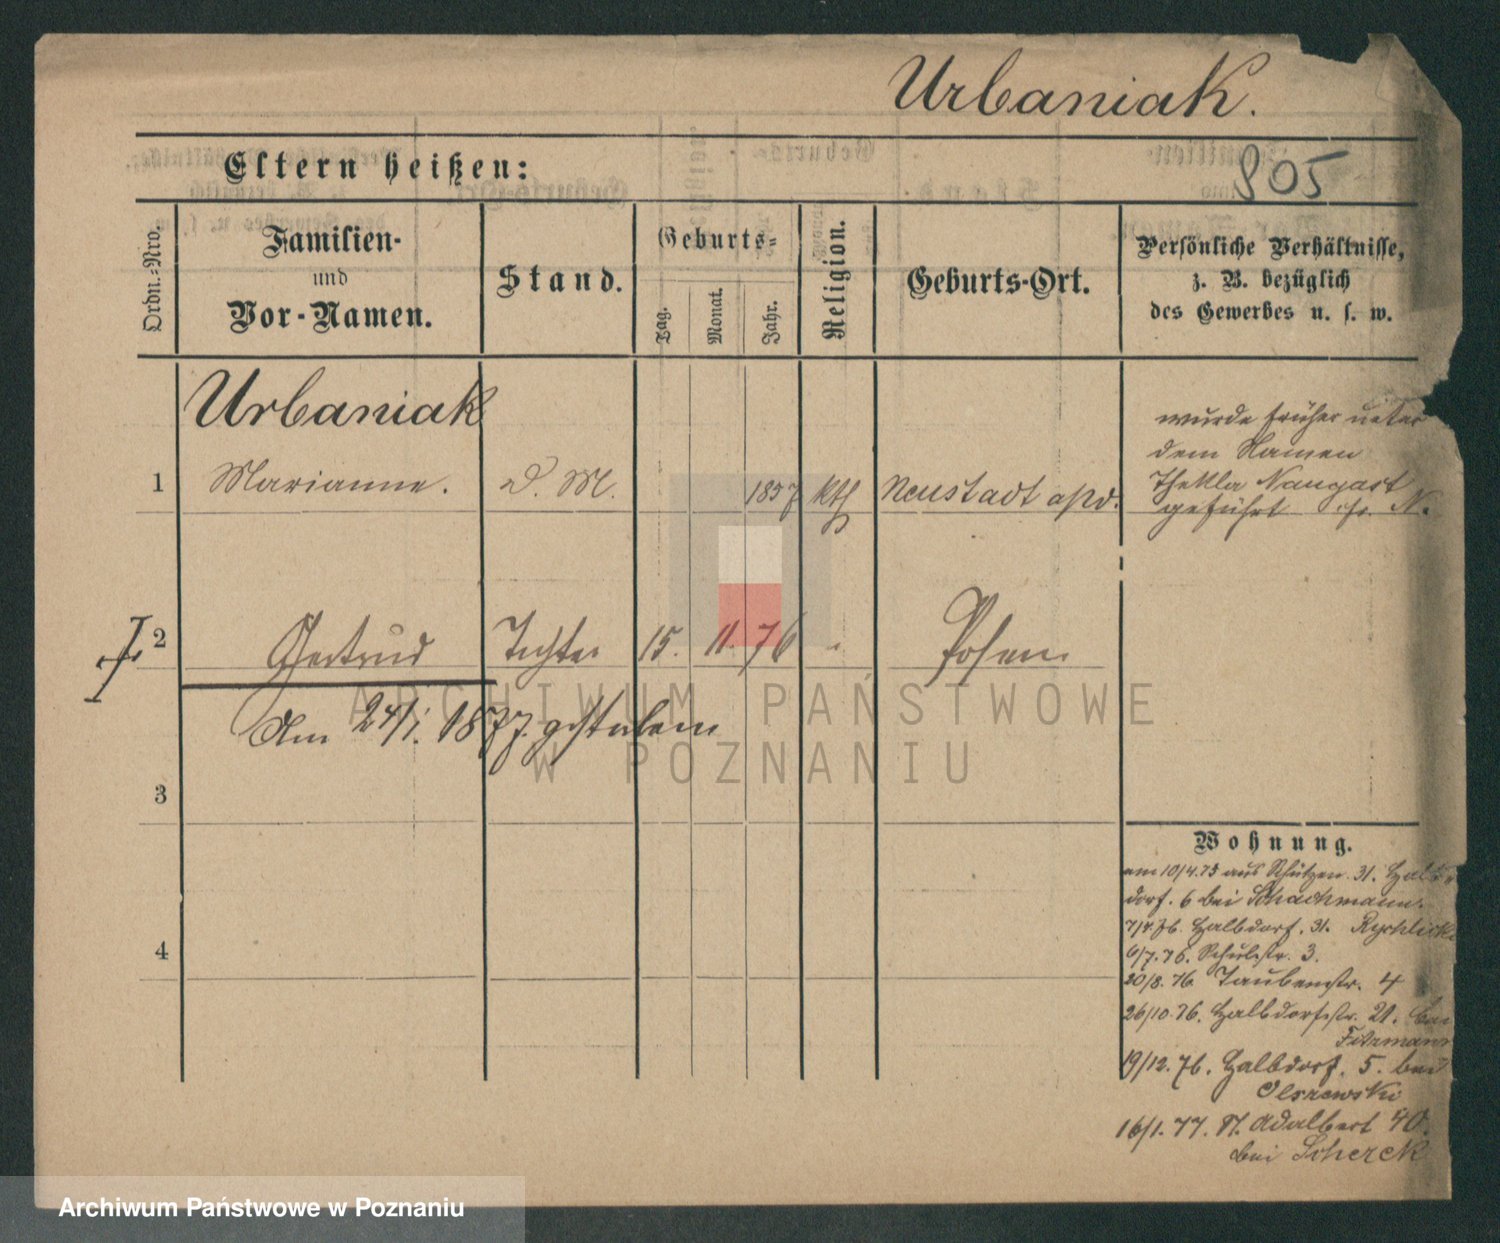 Urbaniak.
Eltern heißen:
805
Ordn.-Nro.
Familien-
und
Vor-Namen.
Stand.
Geburts-
Tag.
Monat.
Jahr.
Religion.
Geburts-Ort.
Persönliche Verhältnisse,
z. B. bezüglich
des Gewerbes u. s. w.
Urbaniak
1 Marianne. d. M. 1857 kth Neustadt a/W.
wurde früher unter
dem Namen
Thekla Naugart
geführt N.
2 Gertrud Tochter 15. 11. 76 Posen
Am 24/1. 1877. gestorben
3
4
Wohnung.
am 10/4.75 aus Schützen. 31. Halb-
dorf. 6 bei Schachmann.
7/4.76. Halbdorf. 31. Rychlicki
6/7.76. Schulstr. 3.
20/8. 76 Taubenstr. 4
26/10.76. Halbdorfstr. 21. bei
19/12.76. Halbdorf. 5. bei
Olszewski
16/1.77. St. Adalbert 40.
bei Scherek
ARCHIWUM PAŃSTWOWE
W POZNANIU
Archiwum Państwowe w Poznaniu